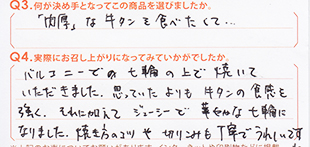 Q3.何が決め手となってこの商品を選びましたか。
「肉厚」な牛タンを食べたくて…
Q4.実際にお召し上がりになってみていかがでしたか。
バルコニーでの七輪の上で焼いて
いただきました。思っていたよりも牛タンの食感を
強く、それに加えてジューシーで華やかな七輪に
なりました。焼き方のコツや切りこみも丁寧でうれしいです